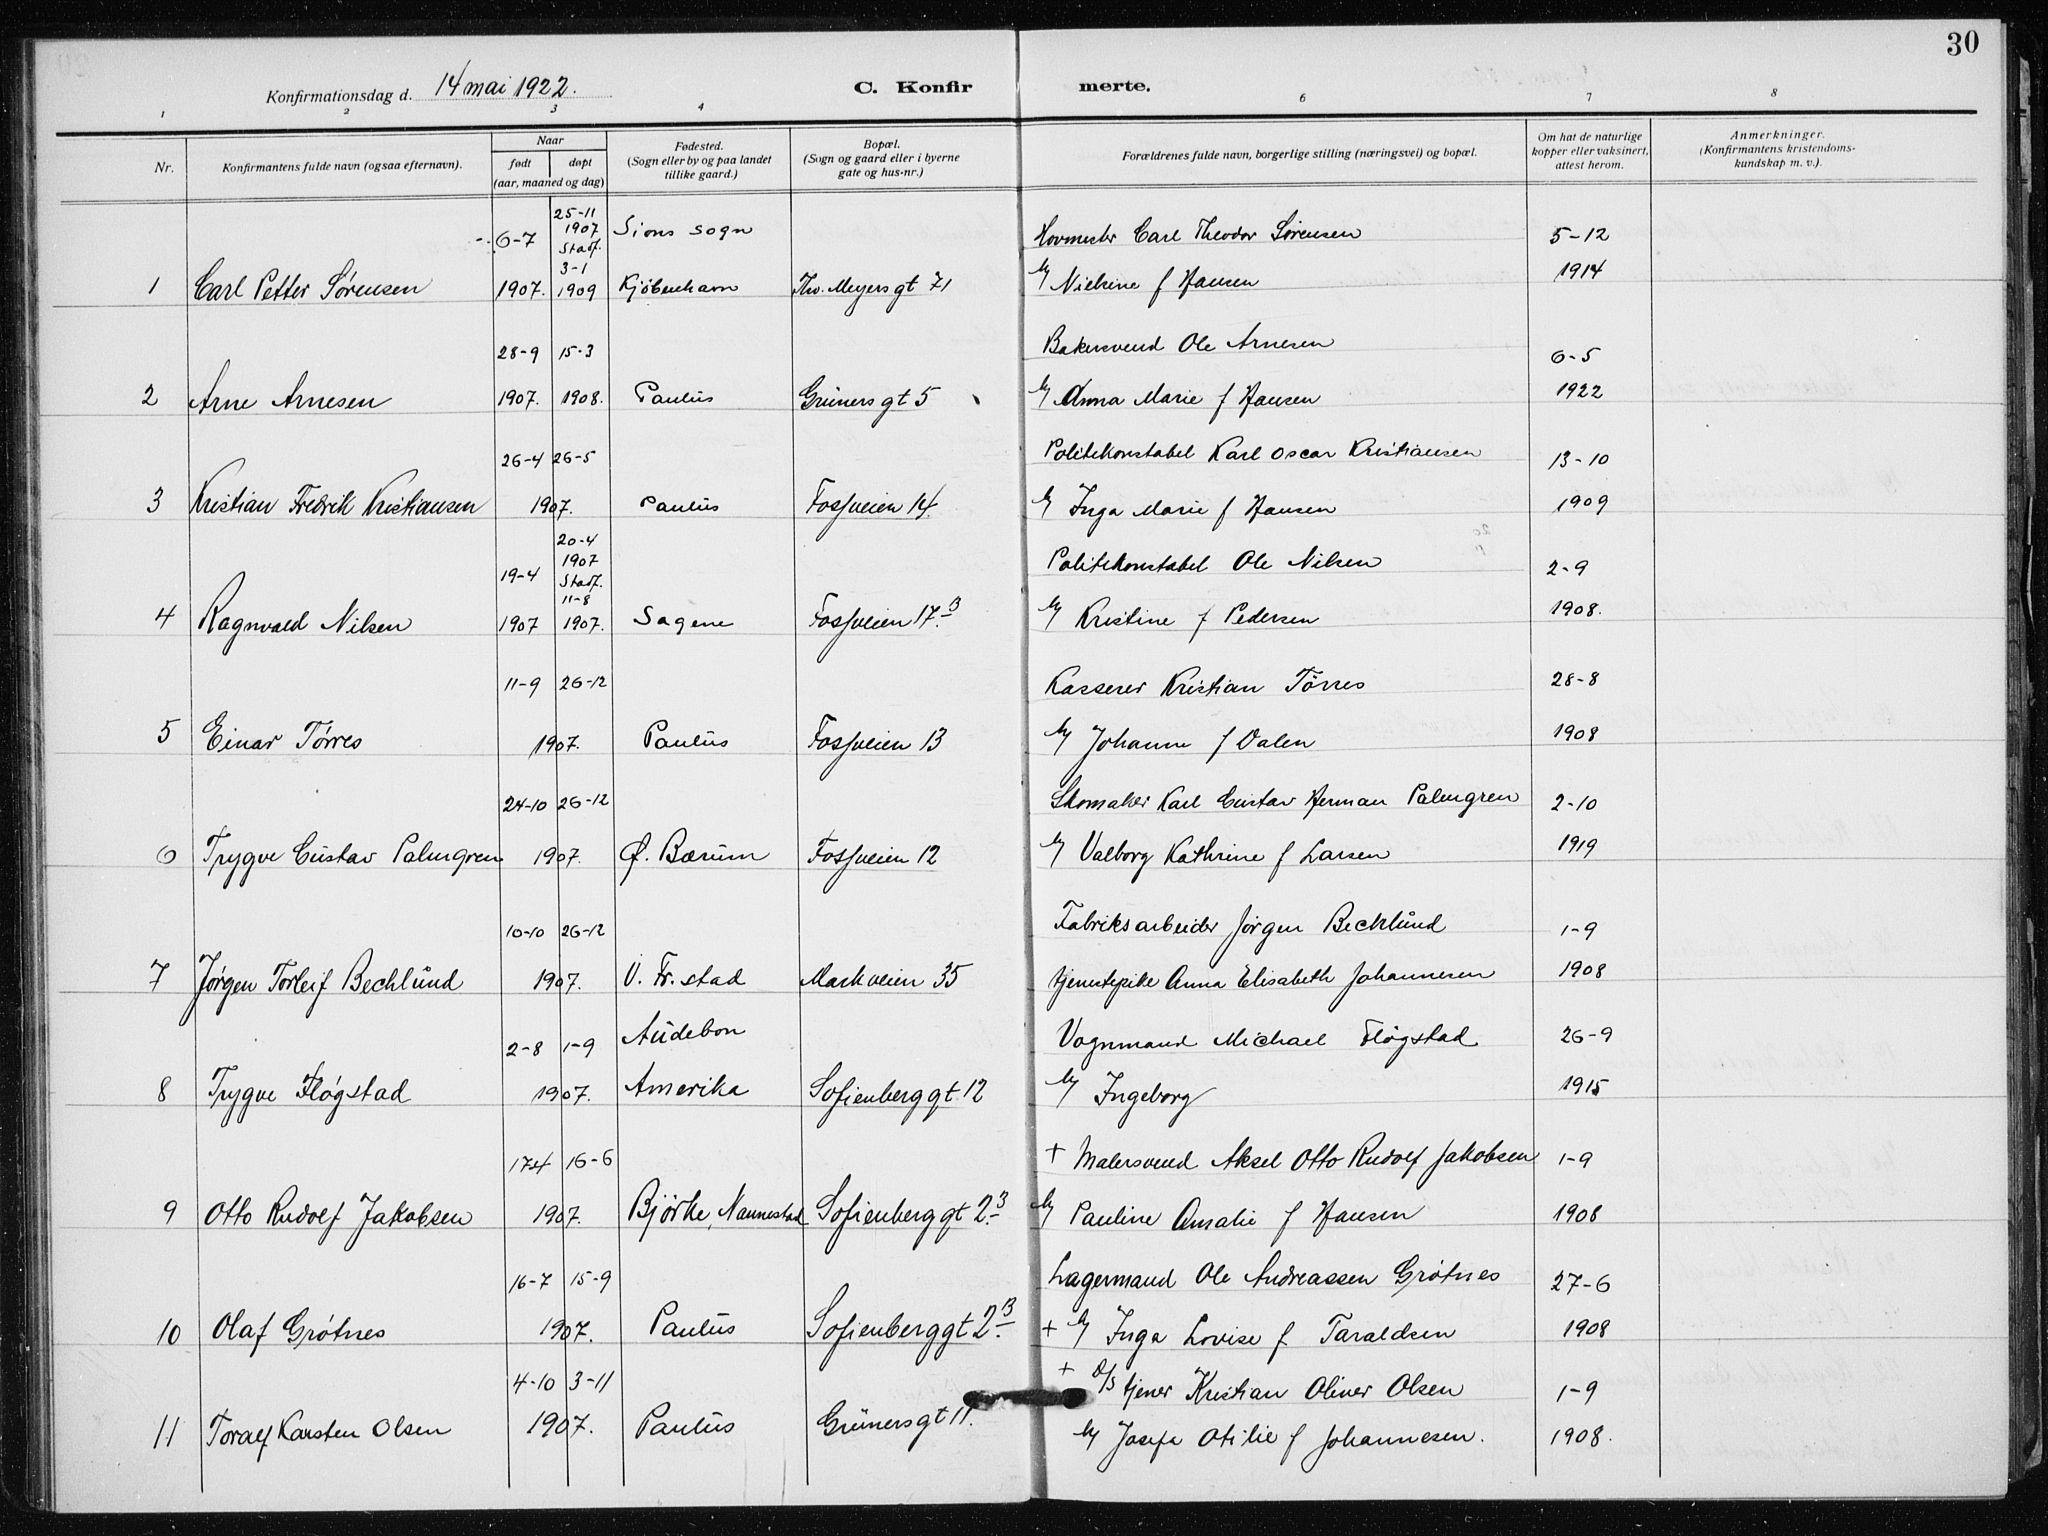 30
Konfirmationsdag d. 14 mai 1922. C. Konfir merte.
1 2 3 4 6 7 8
Nr. Konfirmantens fulde navn (ogsaa efternavn). Naar født døpt (aar, maaned og dag) Fødested. (Sogn eller by og paa landet tillike gaard.) Bopæl. (Sogn og gaard eller i byerne gate og hus-nr.) Forældrenes fulde navn, borgerlige stilling (næringsvei) og bopæl. Om hat de naturlige kopper eller vaksinert, attest herom. Anmerkninger. (Konfirmantens kristendomskundskap m. v.).
6-7 25-11 1907 Stadf. 3-1 Sions sogn Hovmester Carl Theodor Sørensen 5-12
1 Carl Petter Sørensen 1907. 1909 Kjøbenhavn Thv. Meyersgt 71 Nielsine f Hansen 1914
28-9 15-3 Bakersvend Ole Arnesen 6-5
2 Arne Arnesen 1907. 1908. Paulus Grünersgt 5 Anna Marie f Hansen 1922
26-4 26-5 Politikonstabel Karl Oscar Kristiansen 13-10
3 Kristian Fredrik Kristiansen 1907. Paulus Fossveien 14. Inga Marie f Hansen 1909
19-4 20-4 1907 Stadf. 11-8 Politikonstabel Ole Nilsen 2-9
4 Ragnvald Nilsen 1907 1907. Sagene Fossveien 17.B Kristine f Pedersen 1908.
11-9 26-12 Kasserer Kristian Tørres 28-8
5 Einar Tørres 1907. Paulus Fossveien 13 Johanne f Dalen 1908
24-10 26-12 Skomaker Karl Gustav Herman Palmgren 2-10
6 Trygve Gustav Palmgren 1907. Ø. Bærum Fossveien 12 Valborg Kathrine f Larsen 1919
10-10 26-12 Fabriksarbeider Jørgen Becklund 1-9
7 Jørgen Torleif Becklund 1907. V. Fr. stad Markveien 35 tjenestepike Anna Elisabeth Johannesen 1908
2-8 1-9 Audebon Vognmand Michael Fløgstad 26-9
8 Trygve Fløgstad 1907. Amerika Sofienberggt 12 Ingeborg 1915
17-4 16-6 + Malersvend Aksel Otto Rudolf Jakobsen 1-9
9 Otto Rudolf Jakobsen 1907. Bjørke, Nannestad Sofienberggt 2.B Pauline Amalie f Hansen 1908
16-7 15-9 Lagermand Ole Andreassen Grøtnes 27-6
10 Olaf Grøtnes 1907. Paulus Sofienberggt 2.B + Inga Lovise f Taraldsen 1908
4-10 3-11 + D/s tjener Kristian Oliver Olsen 1-9
11 Toralf Karsten Olsen 1907. Paulus Grünersgt 11. Josefa Otilie f Johannesen. 1908.